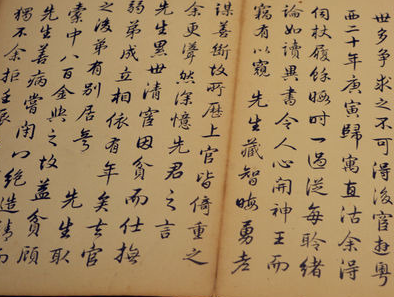 世多争求之不可得後官遊粤
西二十年庚寅歸寓直沽余得
伺杖履餘晦时一過從每聆緒
論如读異書令人心開神王而
竊有以窺 先生藏智晦勇老
謀善斷故所歷上官皆倚重之
余更聳然深憶先君之言
先生累世清宦因貧而仕撫
弱弟成立相依有年矣去官
之後弟有别居 先生取
橐中八百金與之故益貧顧
先生善病嘗閉门絶造請而
獨不余拒